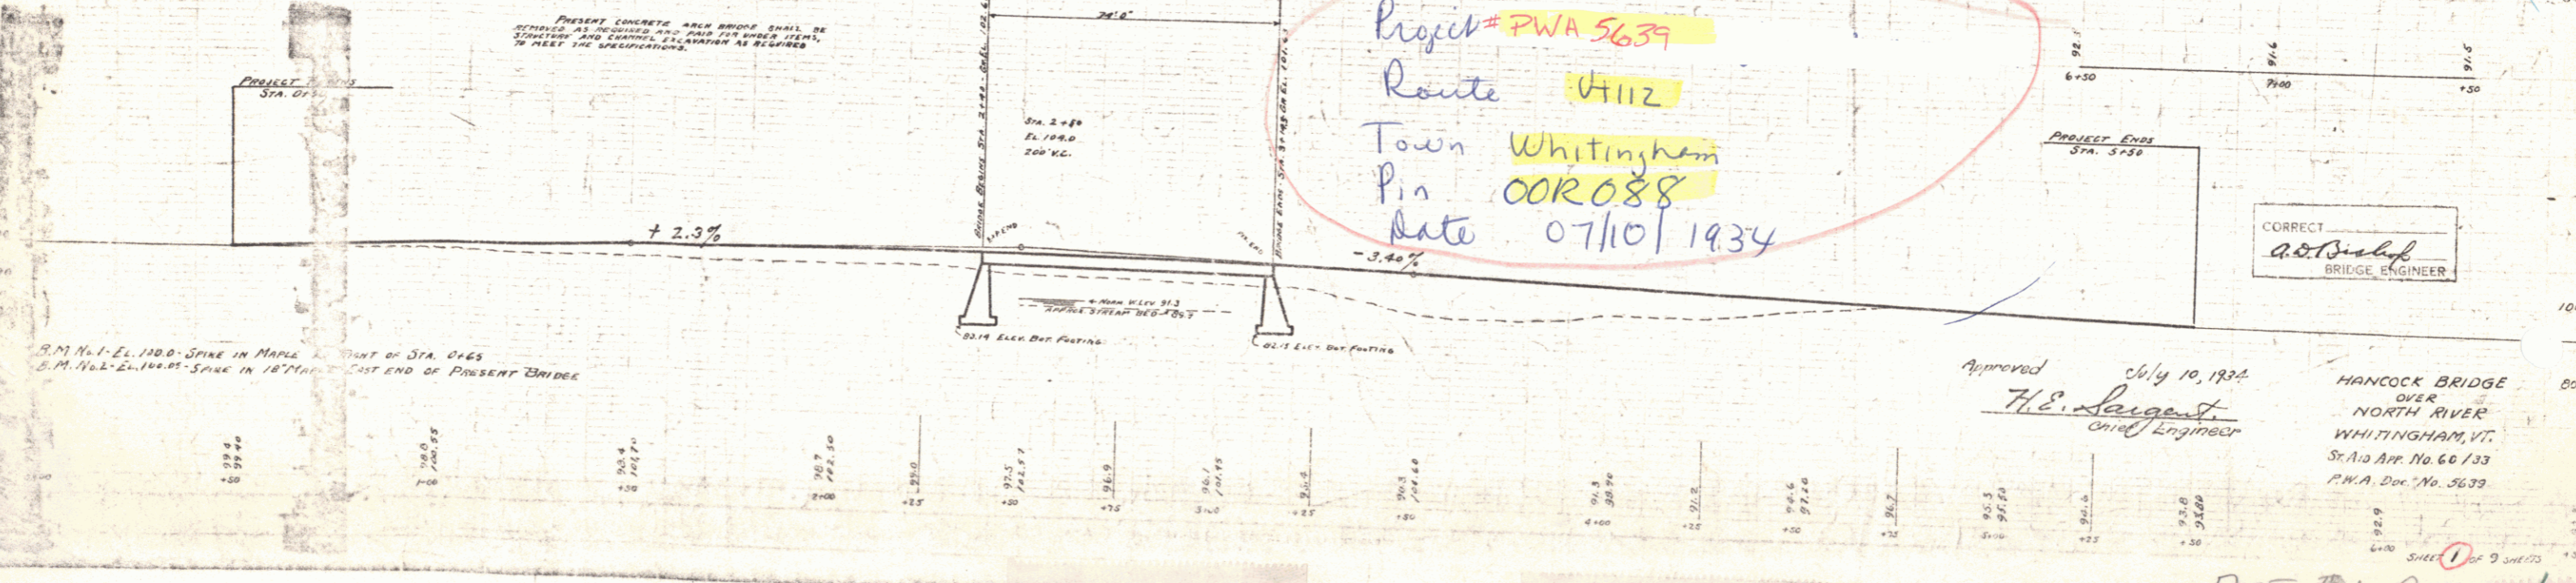 PRESENT CONCRETE ARCH BRIDGE SHALL BE
REMOVED AS REQUIRED AND PAID FOR UNDER ITEMS,
STRUCTURE AND CHANNEL EXCAVATION AS REQUIRED
TO MEET THE SPECIFICATIONS.
74'0"
Project # PWA 5639
Route Vt112
Town Whitingham
Pin 00R088
Date 07/10/1934
6+50
91.6
7+00
91.5
+50
PROJECT
STA.
BRIDGE BEGINS STA. 2+43
STA. 2+50
EL. 104.0
200' V.C.
BRIDGE ENDS STA.
PROJECT ENDS
STA. 5+50
CORRECT
A.D. Bishop
BRIDGE ENGINEER
+ 2.3%
EXP. END
FIX. END
-3.40%
NORM. W. LEV. 91.3
APPROX. STREAM BED
ELEV. BOT. FOOTING
ELEV. BOT. FOOTING
B.M. No.1 - EL. 100.0 - SPIKE IN MAPLE OF STA. 0+65
B.M. No.2 - EL. 100.05 - SPIKE IN 18" EAST END OF PRESENT BRIDGE
Approved July 10, 1934
H.E. Sargent.
Chief Engineer
HANCOCK BRIDGE
OVER
NORTH RIVER
WHITINGHAM, VT.
ST. AID APP. No. 60/33
P.W.A. Doc. No. 5639
99.4
99.40
+50
98.8
100.55
1+00
98.4
101.70
+50
98.7
102.50
2+00
99.0
+25
97.5
102.57
+50
96.9
+75
96.1
101.95
3+00
+25
+50
91.3
98.90
4+00
91.2
+25
97.20
+50
96.7
+75
95.5
95.50
5+00
+25
93.8
93.80
+50
92.9
6+00
SHEET 1 OF 9 SHEETS